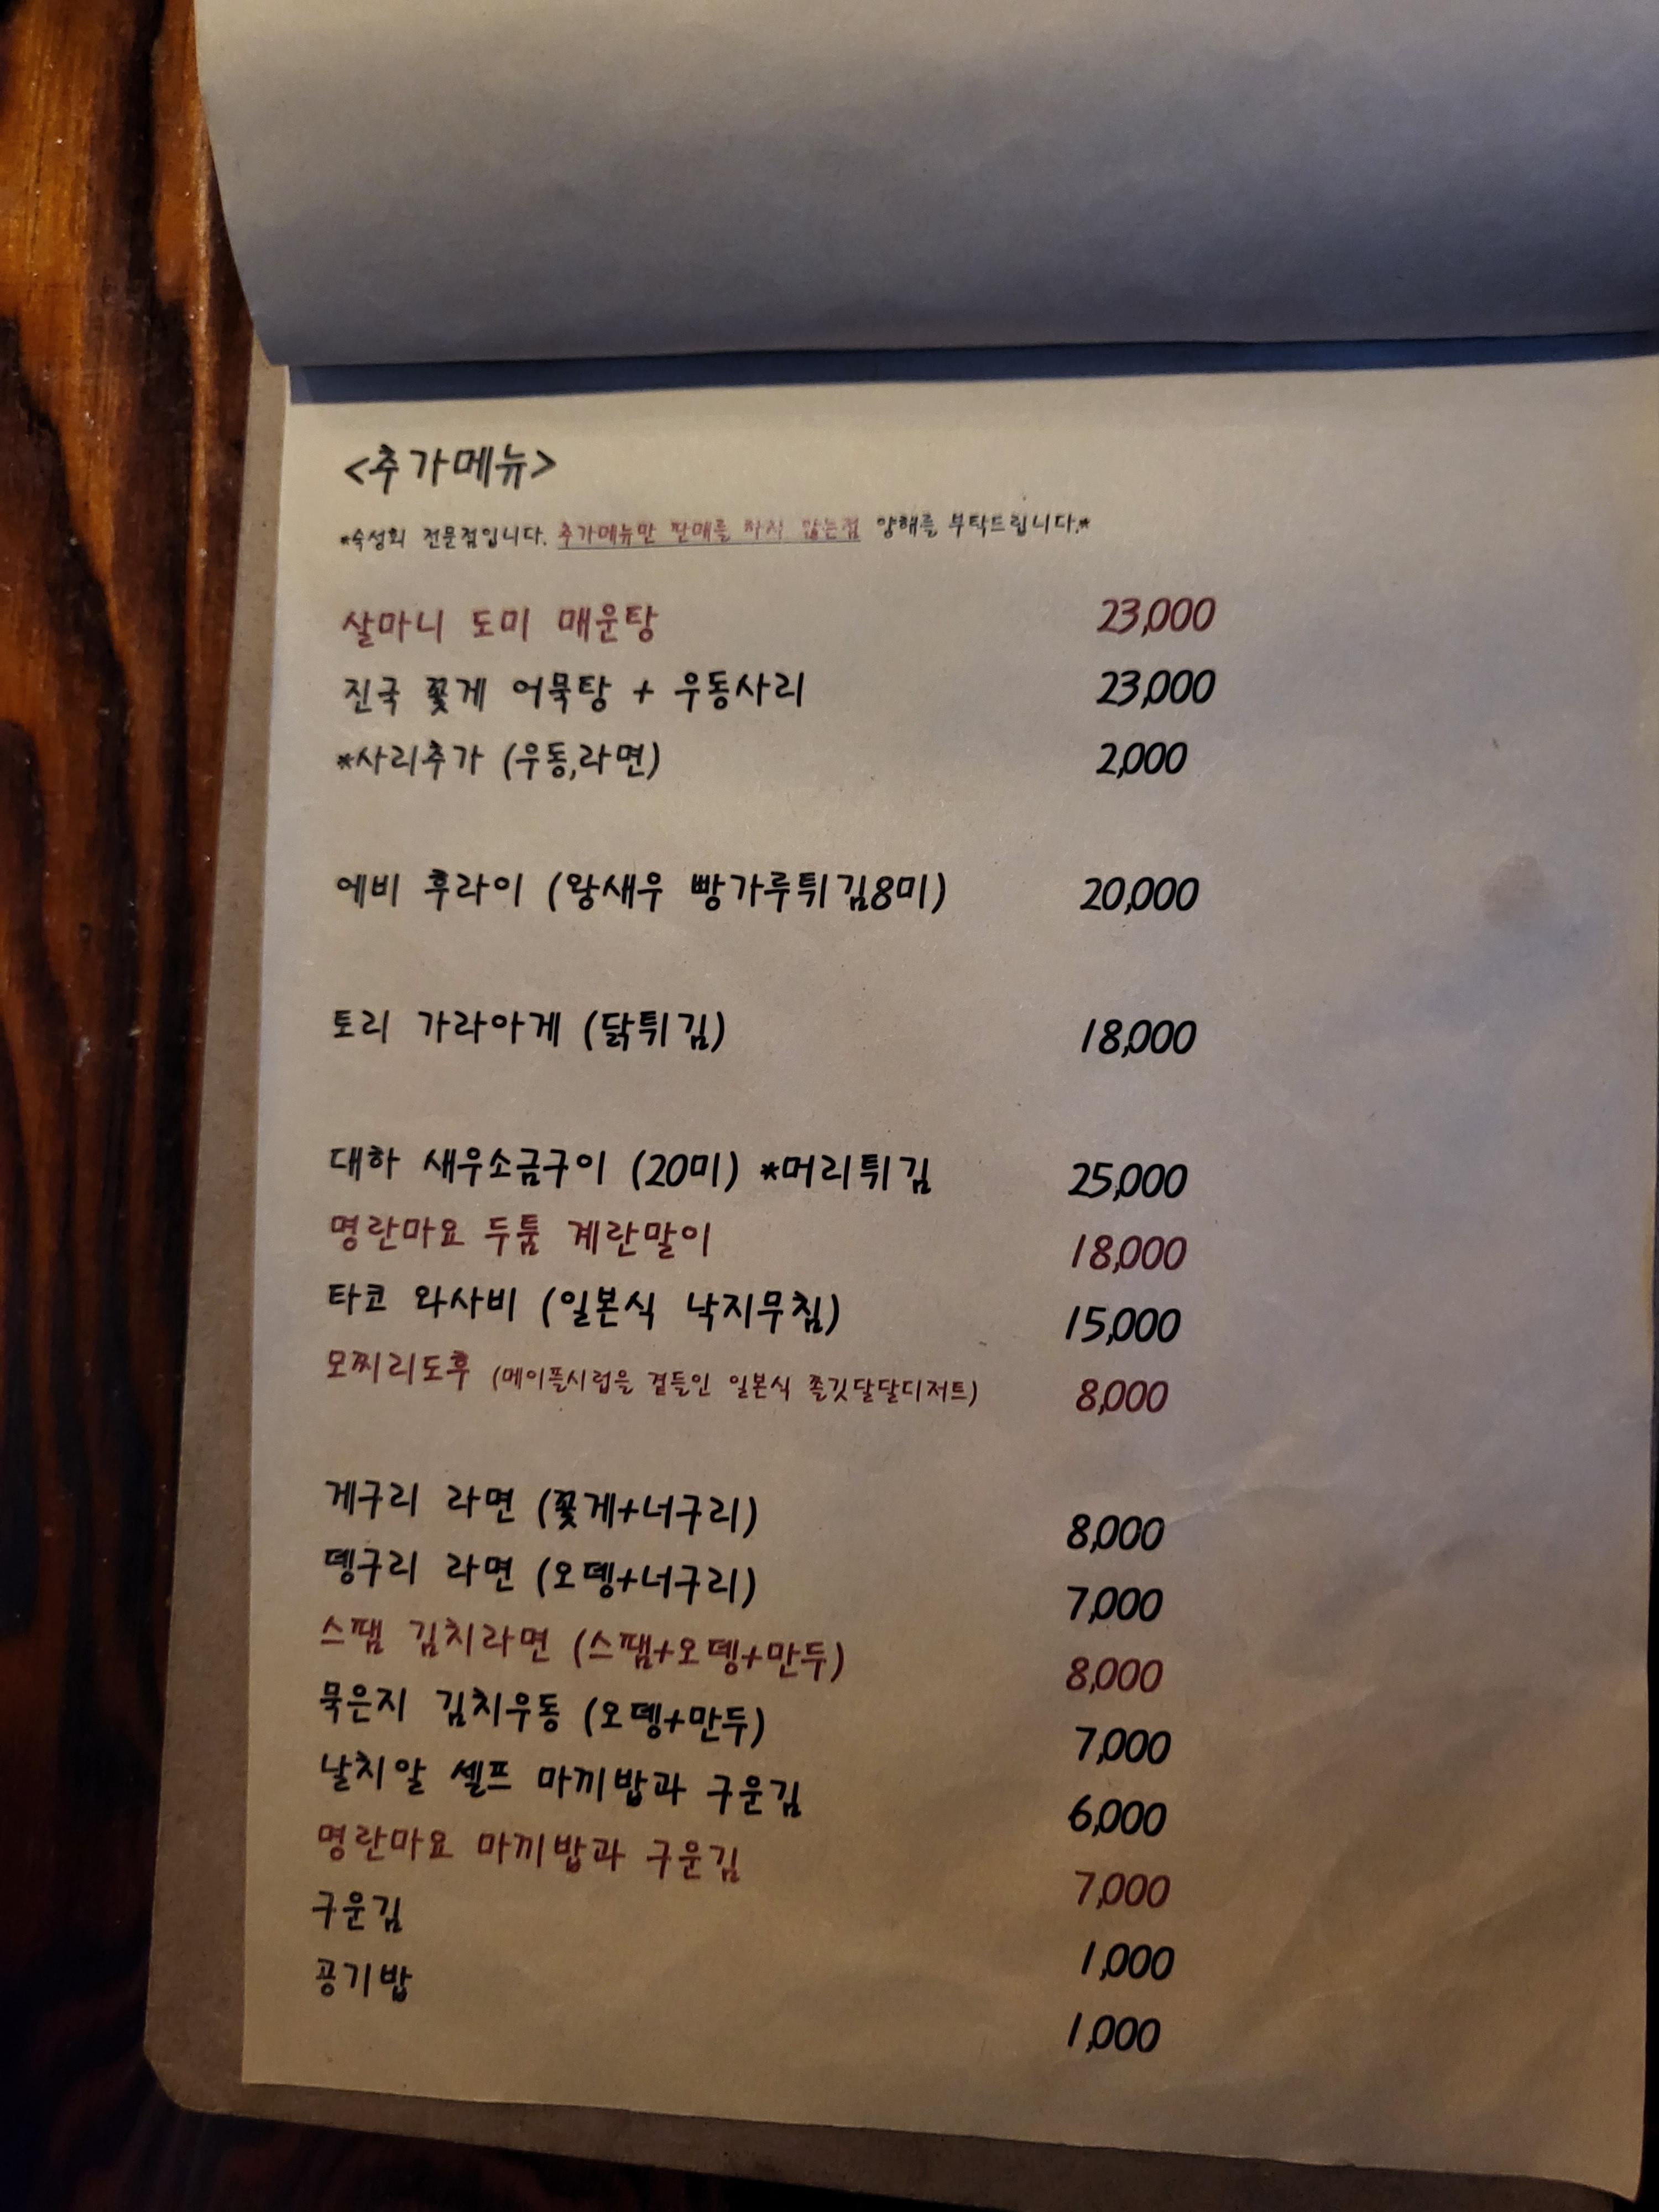 <추가메뉴>
*숙성회 전문점입니다. 추가메뉴만 판매를 하지 않는점 양해를 부탁드립니다*
살마니 도미 매운탕 23,000
진국 꽃게 어묵탕 + 우동사리 23,000
*사리추가 (우동,라면) 2,000
에비 후라이 (왕새우 빵가루튀김8미) 20,000
토리 가라아게 (닭튀김) 18,000
대하 새우소금구이 (20미) *머리튀김 25,000
명란마요 두툼 계란말이 18,000
타코 와사비 (일본식 낙지무침) 15,000
모찌리도후 (메이플시럽을 곁들인 일본식 쫄깃달달디저트) 8,000
게구리 라면 (꽃게+너구리) 8,000
뎅구리 라면 (오뎅+너구리) 7,000
스팸 김치라면 (스팸+오뎅+만두) 8,000
묵은지 김치우동 (오뎅+만두) 7,000
날치알 셀프 마끼밥과 구운김 6,000
명란마요 마끼밥과 구운김 7,000
구운김 1,000
공기밥 1,000